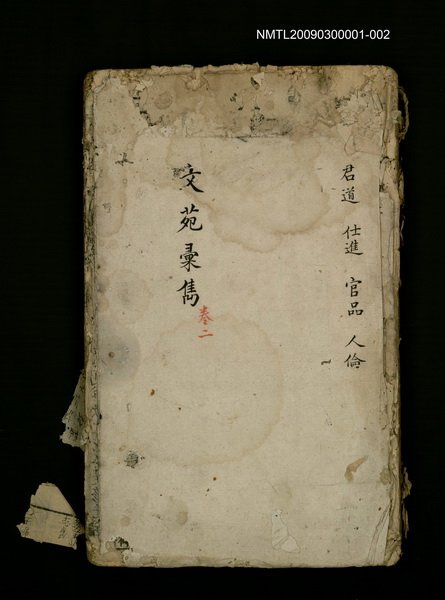 NMTL20090300001-002
君道 仕進 官品 人倫
文苑彙雋
卷二